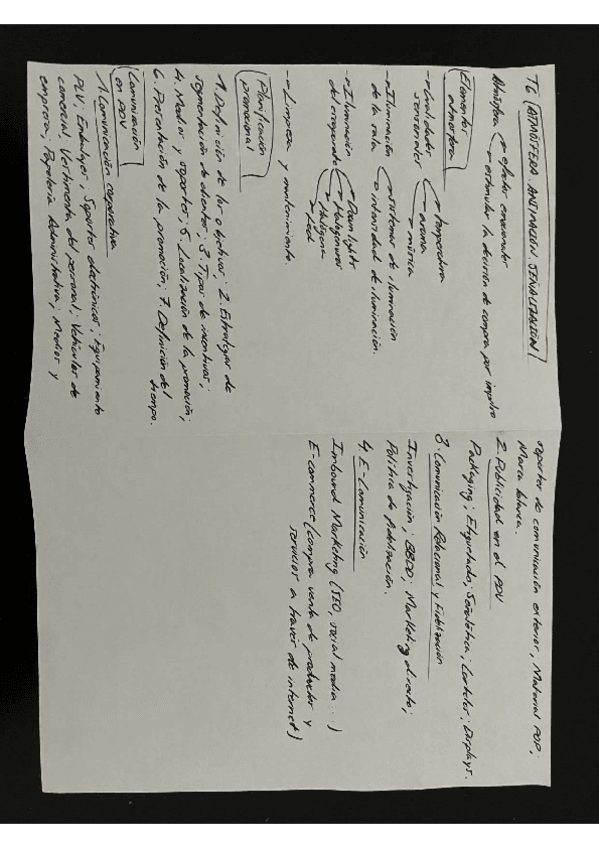 T6 (ATMÓSFERA. ANIMACIÓN SEÑALIZACIÓN)
Atmósfera → efectos emocionales
→ estimular la decisión de compra por impulso
Elementos atmósfera
-> Cualidades sensoriales → temperatura
→ aroma
→ música
-> Iluminación de la sala → sistemas de iluminación
→ intensidad de iluminación.
-> Iluminación del escaparate → Downlights
→ Halógenas
→ Led
-> Limpieza y mantenimiento.
Planificación promocional
1. Definición de los objetivos; 2. Estrategias de
segmentación de clientes; 3. Tipos de incentivos;
4. Medios y soportes; 5. Localización de la promoción;
6. Presentación de la promoción; 7. Definición del
tiempo.
Comunicación en PDV
1. Comunicación corporativa
PLV; Embalajes; Soportes electrónicos; Equipamiento
comercial; Vestimenta del personal; Vehículos de
empresa; Papelería Administrativa; Medios y
soportes de comunicación exterior; Material POP;
Marca blanca.
2. Publicidad en el PDV
Packaging; Etiquetado; Señalética; Carteles; Displays.
3. Comunicación Relacional y Fidelización
Investigación; BBDD; Marketing directo;
Política de fidelización.
4. E-Comunicación
Inbound Marketing (SEO, social media...)
E-commerce (compra venta de productos y
servicios a través de internet)